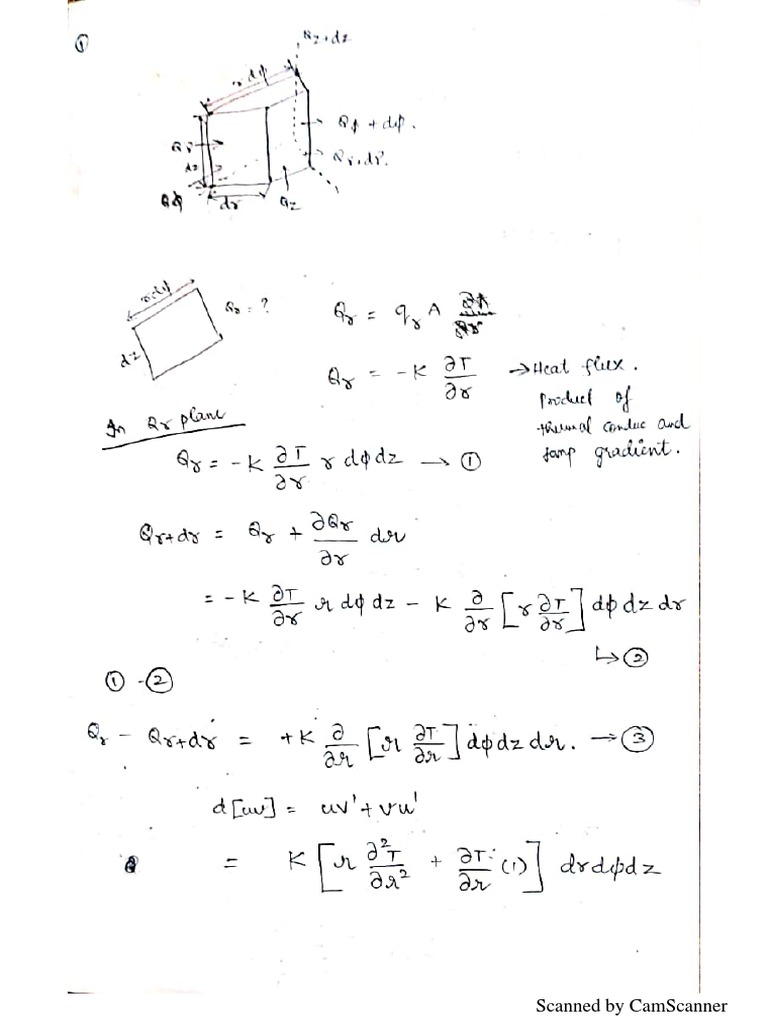 ①
Qz+dz
r dϕ
Qϕ + dϕ.
Qr
Qr+dr.
dz
Qϕ
dr
Qz
r dϕ
Qr = ?
dz
Qr = qr A
Qr = -K ∂T/∂r → Heat flux.
Product of
thermal conduc and
temp gradient.
In Qr plane
Qr = -K ∂T/∂r r dϕ dz → ①
Qr+dr = Qr + ∂Qr/∂r dr
= -K ∂T/∂r r dϕ dz - K ∂/∂r [r ∂T/∂r] dϕ dz dr
↳ ②
① - ②
Qr - Qr+dr = +K ∂/∂r [r ∂T/∂r] dϕ dz dr. → ③
d[uv] = uv' + vu'
= K [r ∂²T/∂r² + ∂T/∂r (1)] dr dϕ dz
Scanned by CamScanner